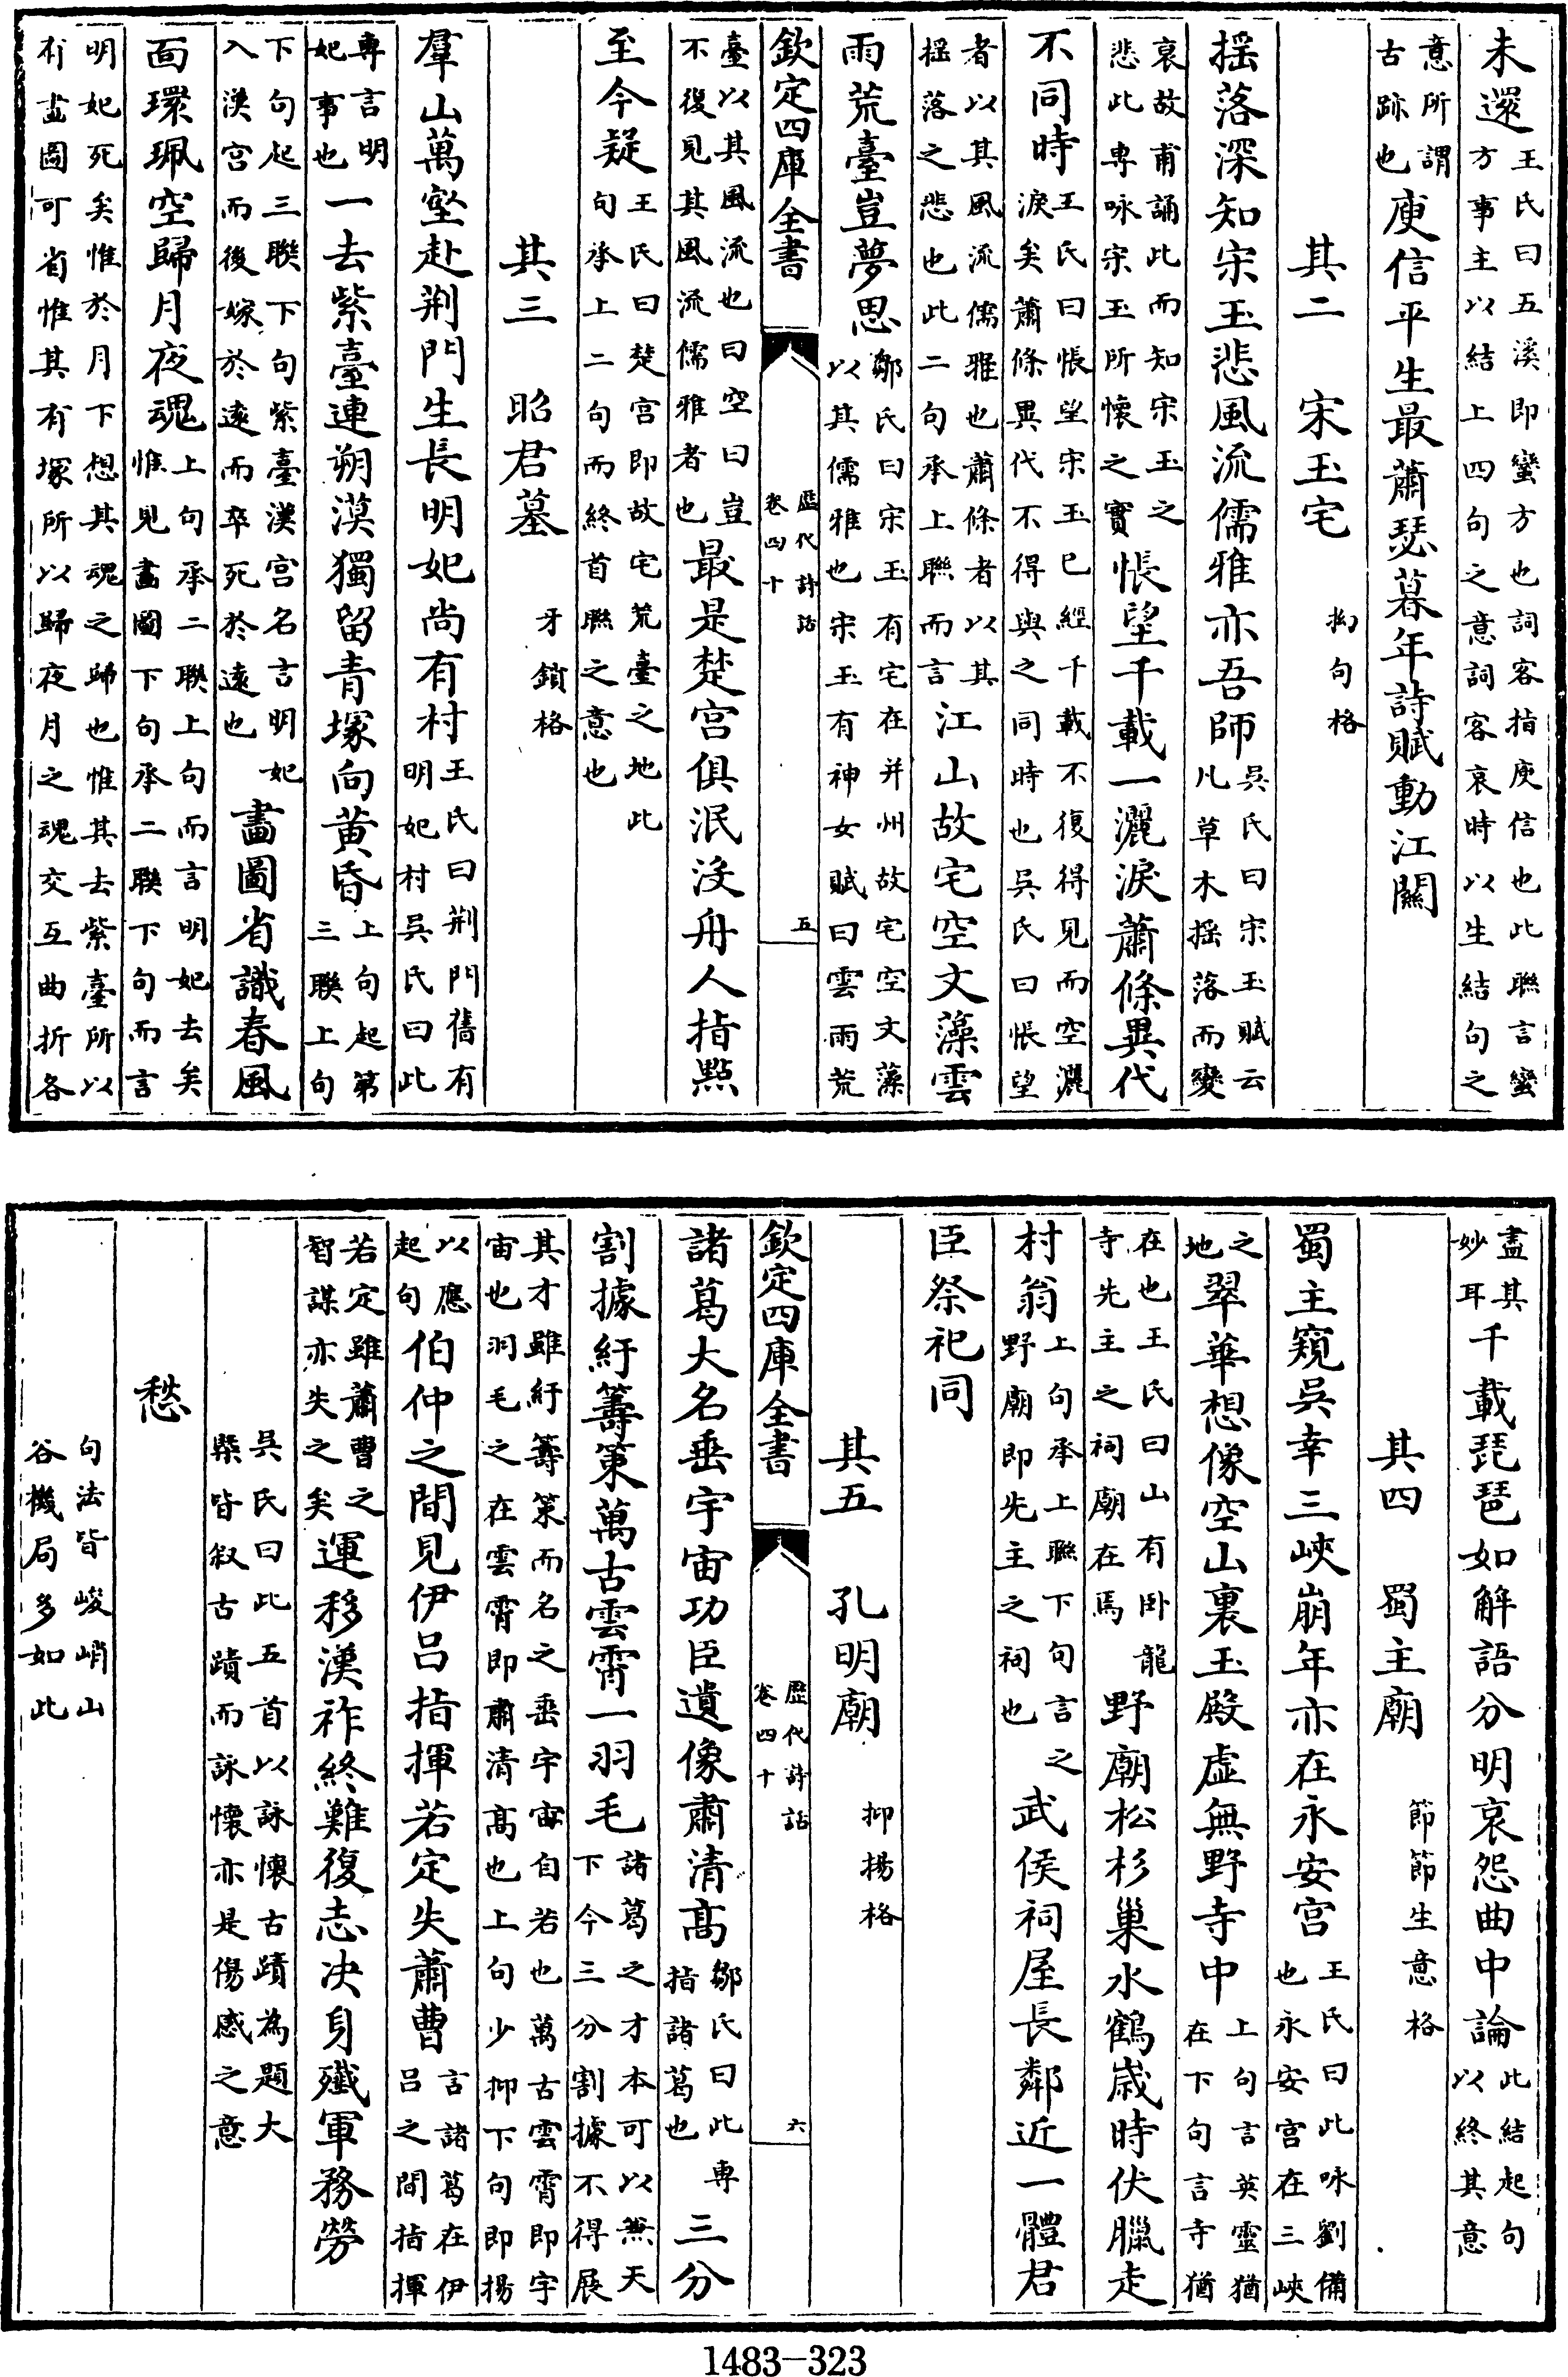 未還王氏曰五溪即蠻方也詞客指庾信也此聯言蠻
方事主以結上四句之意詞客哀時以生結句之
意所謂
古跡也庾信平生最蕭瑟暮年詩賦動江關
其二 宋玉宅 拗句格
摇落深知宋玉悲風流儒雅亦吾師吳氏曰宋玉賦云
凡草木摇落而變
哀故甫誦此而知宋玉之
悲此専咏宋玉所懷之實悵望千載一灑淚蕭條異代
不同時王氏曰悵望宋玉已經千載不復得見而空灑
淚矣蕭條異代不得與之同時也吳氏曰悵望
者以其風流儒雅也蕭條者以其
摇落之悲也此二句承上聯而言江山故宅空文藻雲
雨荒臺豈夢思鄒氏曰宋玉有宅在并州故宅空文藻
以其儒雅也宋玉有神女賦曰雲雨荒
欽定四庫全書 歷代詩話 卷四十 五
臺以其風流也曰空曰豈
不復見其風流儒雅者也最是楚宫俱泯沒舟人指點
至今疑王氏曰楚宫即故宅荒臺之地此
句承上二句而終首聯之意也
其三 昭君墓 牙鎖格
羣山萬壑赴荆門生長明妃尚有村王氏曰荆門舊有
明妃村吳氏曰此
専言明
妃事也一去紫臺連朔漠獨留青塚向黄昏上句起第
三聯上句
下句起三聯下句紫臺漢宫名言明妃
入漢宫而後嫁於逺而卒死於逺也畫圖省識春風
面環珮空歸月夜魂上句承二聯上句而言明妃去矣
惟見畫圖下句承二聯下句而言
明妃死矣惟於月下想其魂之歸也惟其去紫臺所以
有畫圖可省惟其有塚所以歸夜月之魂交互曲折各
盡其
妙耳千載琵琶如解語分明哀怨曲中論此結起句
以終其意
其四 蜀主廟 節節生意格
蜀主窺吳幸三峽崩年亦在永安宫王氏曰此咏劉備
也永安宫在三峽
之
地翠華想像空山裏玉殿虚無野寺中上句言英靈猶
在下句言寺猶
在也王氏曰山有卧龍
寺先主之祠廟在焉野廟松杉巢水鶴歲時伏臘走
村翁上句承上聯下句言之
野廟即先主之祠也武侯祠屋長鄰近一體君
臣祭祀同
其五 孔明廟 抑揚格
欽定四庫全書 歷代詩話 卷四十 六
諸葛大名垂宇宙功臣遺像肅清髙鄒氏曰此専
指諸葛也三分
割據紆籌策萬古雲霄一羽毛諸葛之才本可以無天
下今三分割據不得展
其才雖紆籌策而名之垂宇宙自若也萬古雲霄即宇
宙也羽毛之在雲霄即肅清髙也上句少抑下句即揚
以應
起句伯仲之間見伊吕指揮若定失蕭曹言諸葛在伊
吕之間指揮
若定雖蕭曹之
智謀亦失之矣運移漢祚終難復志决身殲軍務勞
吳氏曰此五首以詠懷古蹟為題大
槩皆叙古蹟而詠懷亦是傷感之意
愁
句法皆峻峭山
谷機局多如此
1483—323